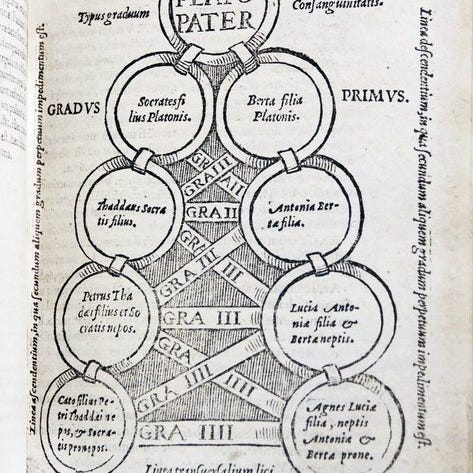 Typus graduum
PLATO
PATER
Consanguinitatis.
GRADVS
PRIMVS.
Socrates fi
lius Platonis.
Berta filia
Platonis.
Thaddæus Socra
tis filius.
GRA II
Antonia Ber
tæ filia.
GRA III
GRA III
Petrus Tha
dæi filius et So
cratis nepos.
GRA III
Lucia Anto
niæ filia &
Bertæ neptis.
GRA IIII
GRA IIII
Cato filius Pe
tri Thaddæi ne
pos, & Socra
tis pronepos.
GRA IIII
Agnes Luciæ
filia, neptis
Antoniæ &
Bertæ prone.
Linea transuersalium lici
Linea ascendentium, in qua secundum aliquem gradum perpetuum impedimentum est.
Linea descendentium, in qua secundum aliquem gradum perpetuum impedimentum est.